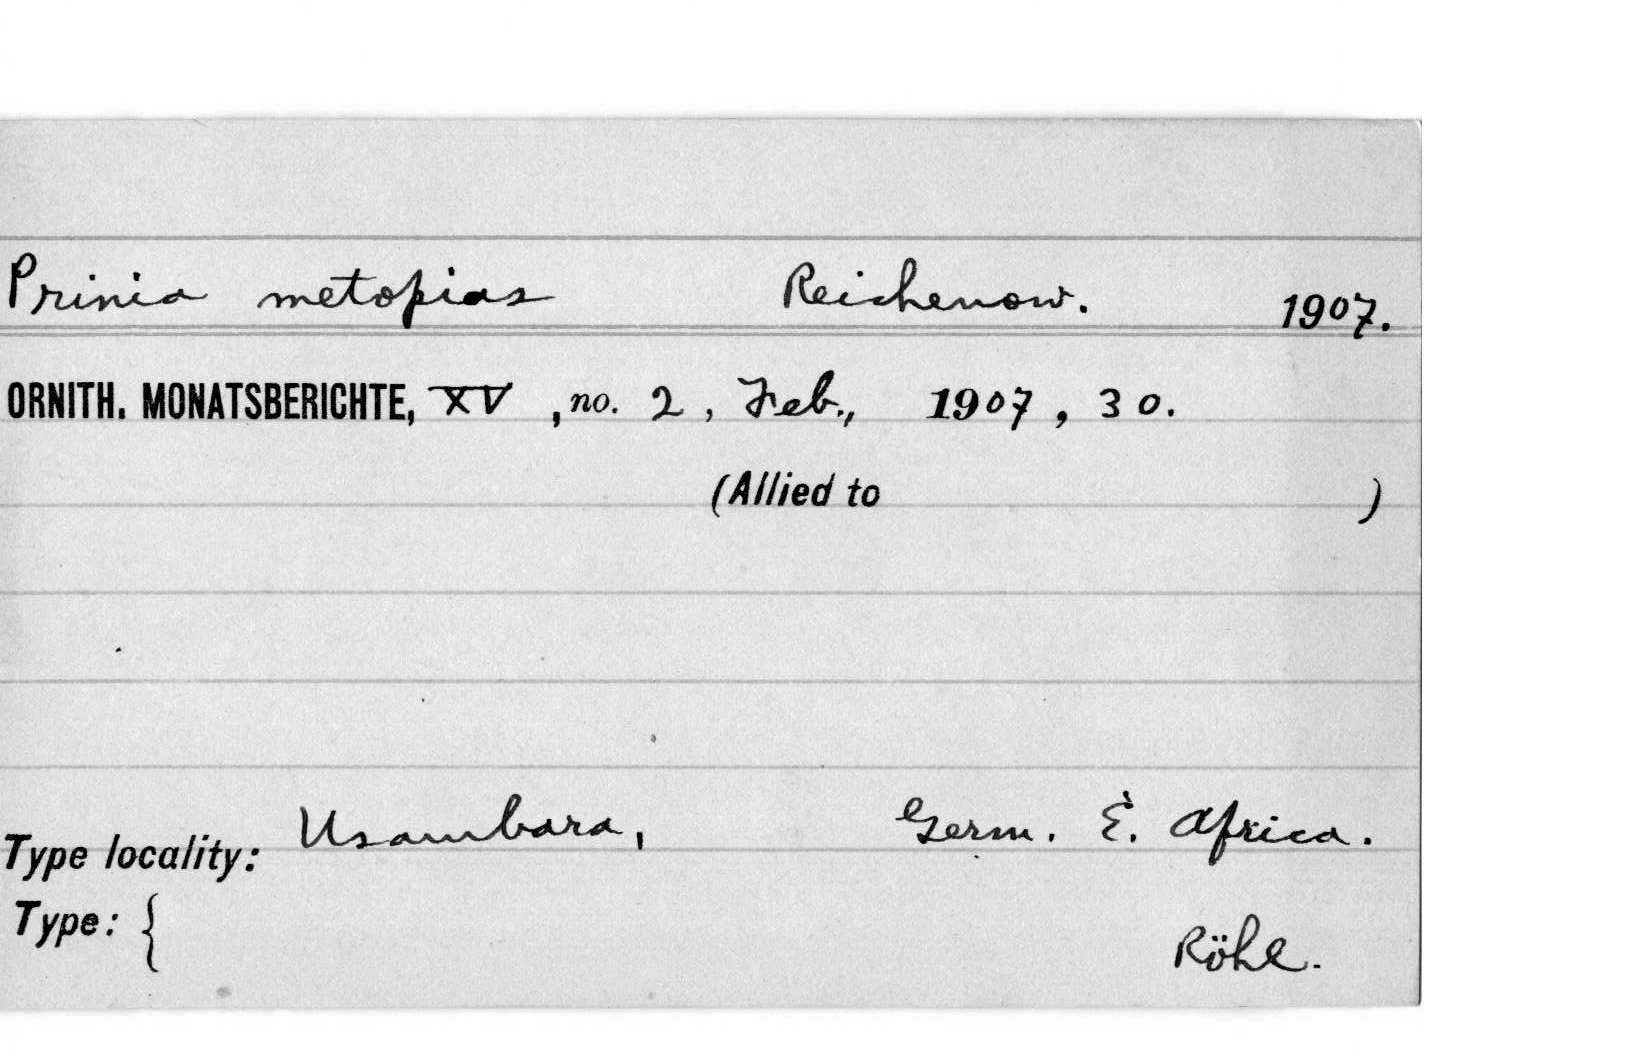 Prinia metopias Reichenow. 1907.
ORNITH. MONATSBERICHTE, XV, no. 2, Feb., 1907, 30.
(Allied to )
Type locality: Usambara, Germ. E. Africa.
Type: { Röhl.